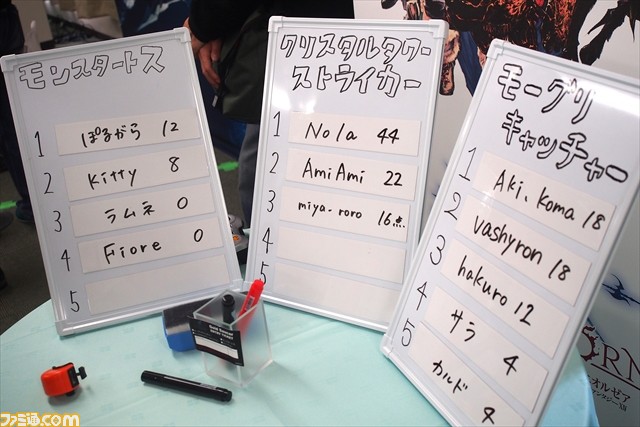 モンスタートス
1 ぽるがら 12
2 Kitty 8
3 ラムネ 0
4 Fiore 0
5
クリスタルタワー
ストライカー
1 Nola 44
2 AmiAmi 22
3 miya-roro 16点
4
5
モーグリ
キャッチャー
1 Aki.Koma 18
2 Vashyron 18
3 hakuro 12
4 サラ 4
5 カルド 4
ORN
オルゼア
ファミ通.com